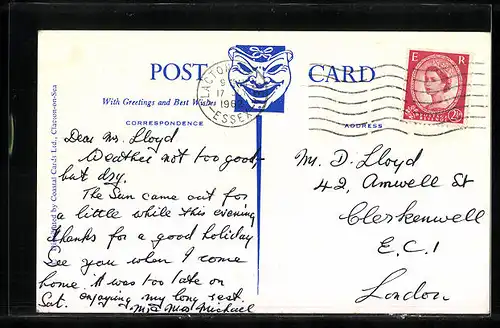 POST CARD
With Greetings and Best Wishes
CORRESPONDENCE
ADDRESS
Distributed by Coastal Cards Ltd., Clacton-on-Sea
CLACTON
17
196
ESSEX
E R
2½
Dear Mrs. Lloyd
Weather not too good,
but dry.
The Sun came out for
a little while this evening
thanks for a good holiday
See you when I come
home. it was too late on
Sat. enjoying my long rest.
Michael
M. D. Lloyd
42, Amwell St
Clerkenwell
E.C.1
London